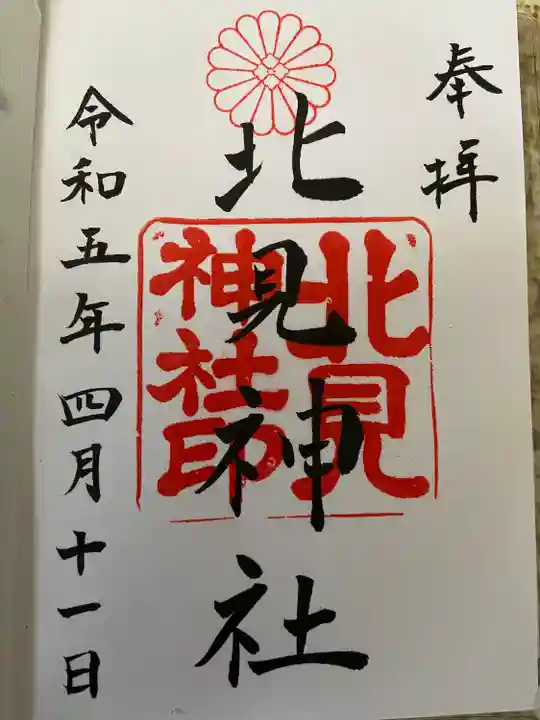 奉拝
北見神社
北見
神社印
令和五年四月十一日